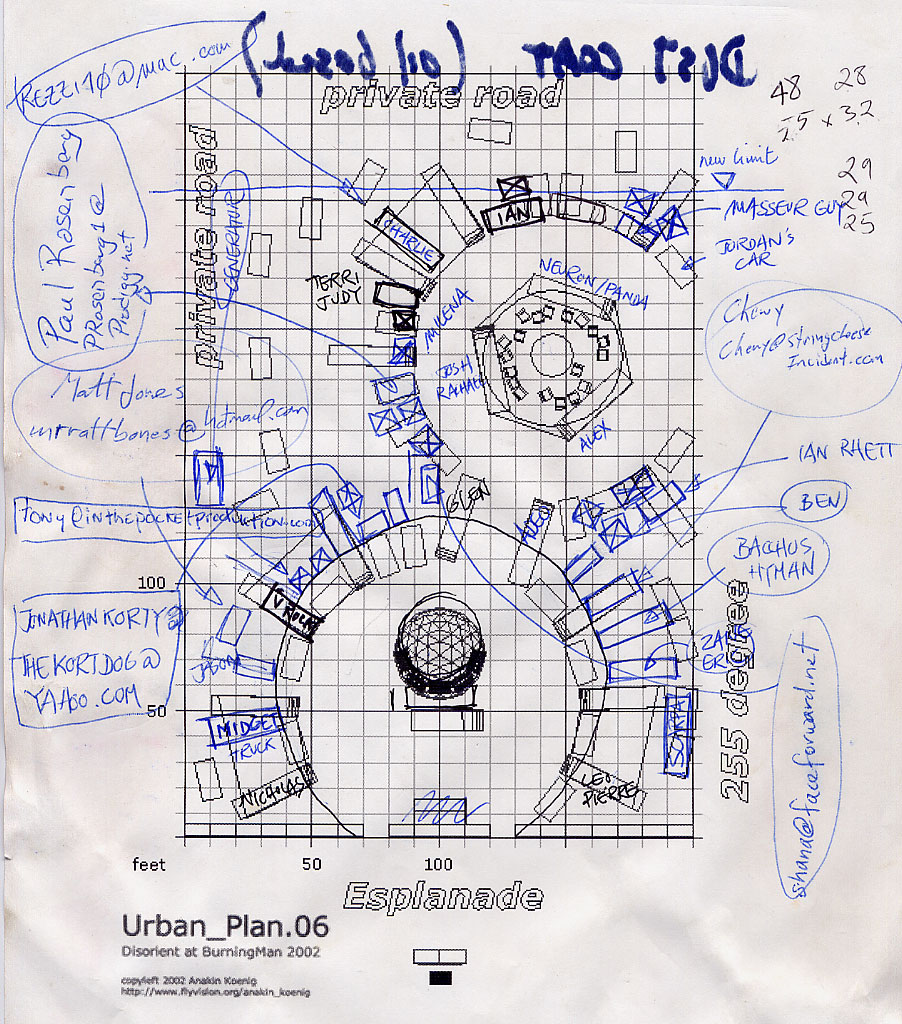 DUST COAT (oil based)
TREZZI10@mac.com
private road
48 28
2.5 x 3.2
29
29
25
new limit
MASSEUR GUY
JORDAN'S
CAR
Paul Rosenberg
PRosenberg1@
Prodigy.net
private road
GENERATUR
IAN
CHARLIE
TERRI
JUDY
MILENA
NEURON/PANDA
JOSH
RACHAEL
ALEX
Chewy
Chewy@Stringcheese
Incident.com
Matt Jones
mrmattbones@hotmail.com
IAN RHETT
BEN
GLEN
Tony@inthepocketproduktion.com
BACCHUS
HYMAN
100
JONATHAN KORTY@
THEKORTDOG@
YAHOO.COM
JASON
ERIC
255 degree
50
MIDGET
TRUCK
NICHOLAS
LEO
PIERRE
shana@faceforward.net
feet
50
100
Esplanade
Urban_Plan.06
Disorient at BurningMan 2002
copyleft 2002 Anakin Koenig
http://www.flyvision.org/anakin_koenig